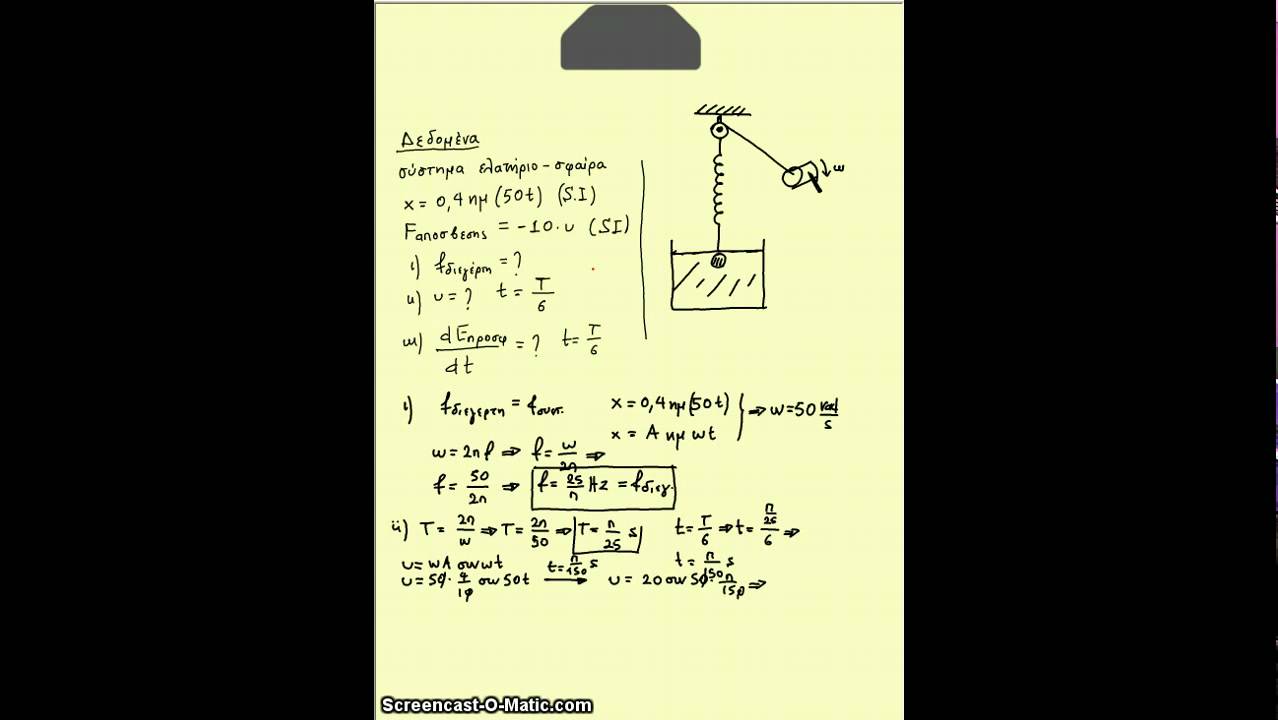 Δεδομένα
σύστημα ελατήριο - σφαίρα
x = 0,4 ημ (50t) (S.I)
Fαποσβεσης = -10·υ (SI)
i) fδιεγέρτη = ?
ii) υ = ? t = T/6
iii) dEπροσφ/dt = ? t = T/6
ω
i) fδιεγερτη = fσυστ. x = 0,4 ημ(50t) ⇒ ω = 50 rad/s
x = A ημ ωt
ω = 2πf ⇒ f = ω/2π ⇒
f = 50/2π ⇒ f = 25/π Hz = fδιεγ.
ii) T = 2π/ω ⇒ T = 2π/50 ⇒ T = π/25 s t = T/6 ⇒ t = π/25/6 ⇒
υ = ωA συν ωt t = π/150 s t = π/150 s
υ = 50·4/10 συν 50t → υ = 20 συν 50·π/150 ⇒
Screencast-O-Matic.com